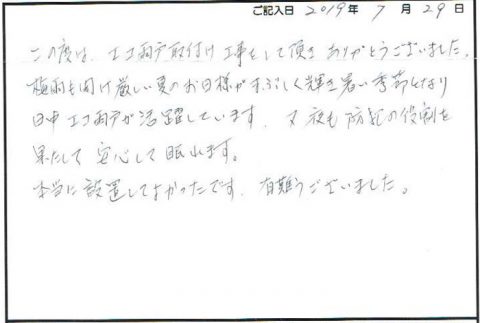 ご記入日 2019年 7月 29日
この度は、エコ雨戸取付け工事をして頂き ありがとうございました。
梅雨も開け厳しい夏のお日様がまぶしく輝き暑い季節となり
日中エコ雨戸が活躍しています。又夜も防犯の役割を
果たして安心して眠れます。
本当に設置してよかったです。有難うございました。